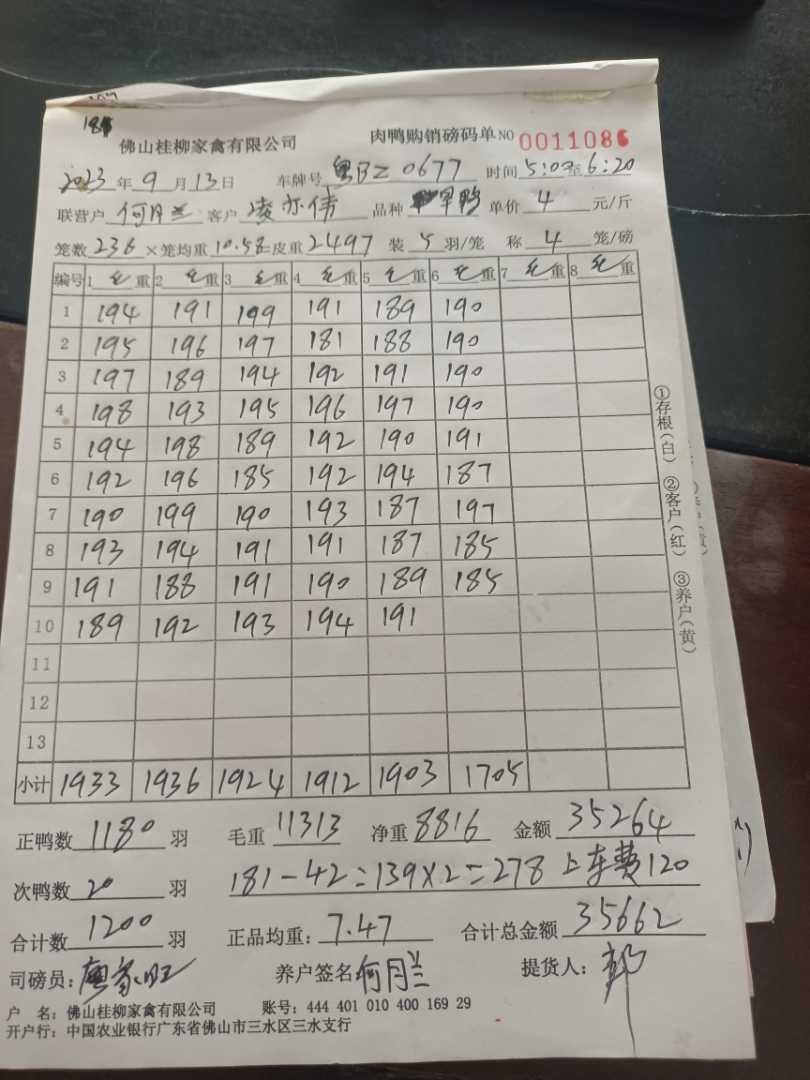 184
佛山桂柳家禽有限公司 肉鸭购销磅码单 NO 0011086
2023年9月13日 车牌号 粤BZ0677 时间 5:00至6:20
联营户 何月兰 客户 凌亦伟 品种 旱鸭 单价 4 元/斤
笼数 236 ×笼均重 10.58=皮重 2497 装 5 羽/笼 称 4 笼/磅
编号 1 毛重 2 毛重 3 毛重 4 毛重 5 毛重 6 毛重 7 毛重 8 毛重
1 194 191 199 191 189 190
2 195 196 197 181 188 190
3 197 189 194 192 191 190
4 198 193 195 196 197 190
5 194 198 189 192 190 191
6 192 196 185 192 194 187
7 190 199 190 193 187 197
8 193 194 191 191 187 185
9 191 188 191 190 189 185
10 189 192 193 194 191
11
12
13
小计 1933 1936 1924 1912 1903 1705
①存根(白) ②客户(红) ③养户(黄)
正鸭数 1180 羽 毛重 11313 净重 8816 金额 35264
次鸭数 20 羽 181-42=139×2=278 上车费120
合计数 1200 羽 正品均重: 7.47 合计总金额 35662
司磅员: 养户签名 何月兰 提货人: 郭
户 名: 佛山桂柳家禽有限公司 账号: 444 401 010 400 169 29
开户行: 中国农业银行广东省佛山市三水区三水支行